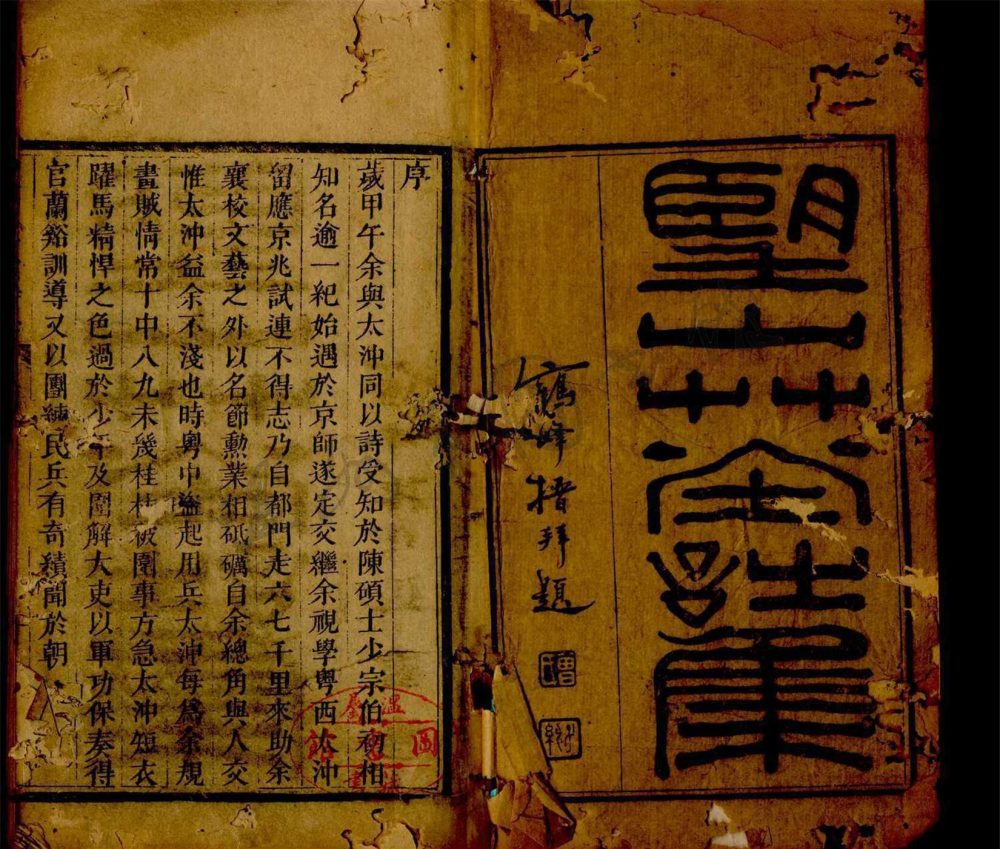 朢山艸堂詩集
峰搢拜題
序
歲甲午余與太沖同以詩受知於陳碩士少宗伯初相
知名逾一紀始遇於京師遂定交繼余視學粵西太沖
留應京兆試連不得志乃自都門走六七千里來助余
襄校文藝之外以名節勳業相砥礪自余總角與人交
惟太沖益余不淺也時粵中盜起用兵太沖每爲余規
畫賊情常十中八九未幾桂林被圍事方急太沖短衣
躍馬精悍之色過於少年及圍解大吏以軍功保奏得
官蘭谿訓導又以團練民兵有奇績聞於朝